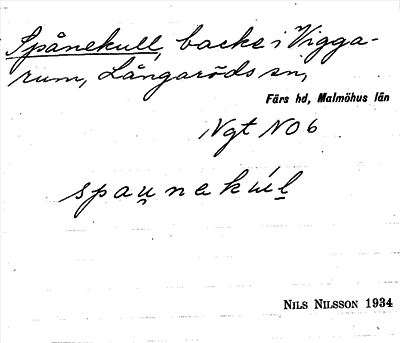 Spånekull, backe i Vigga-
rum, Långaröds sn,
Färs hd, Malmöhus län
Ngt NO 6
spau̯nekúl̲
NILS NILSSON 1934